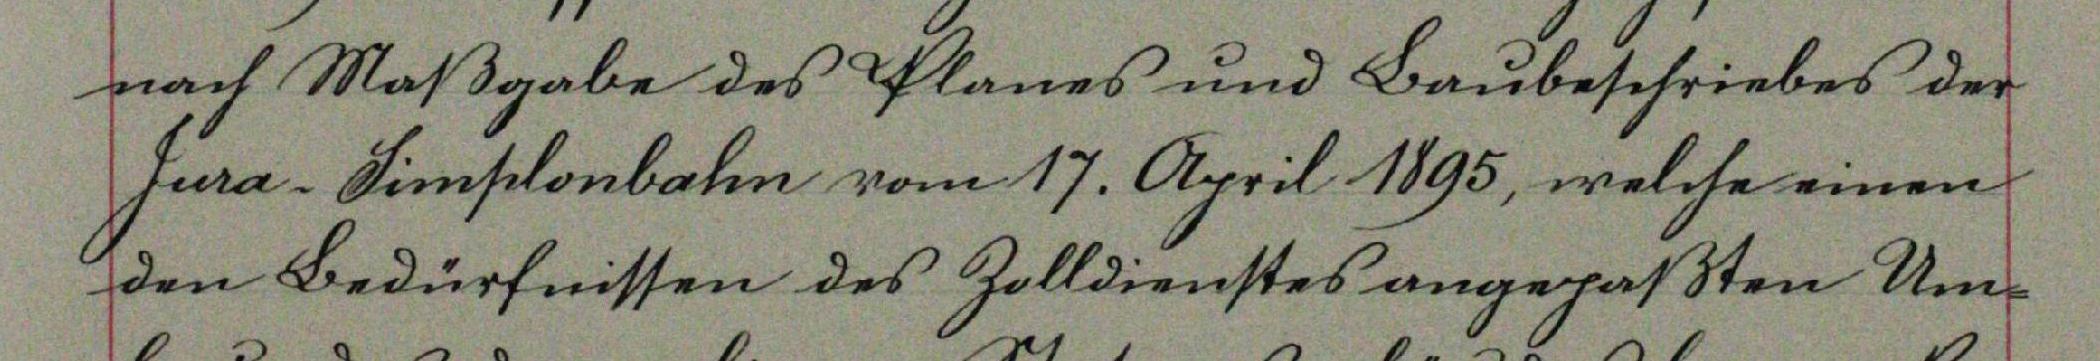 nach Maßgabe des Planes und Baubeschriebes der
Jura-Simplonbahn vom 17. April 1895, welche einen
den Bedürfnissen des Zolldienstes angepaßten Um=